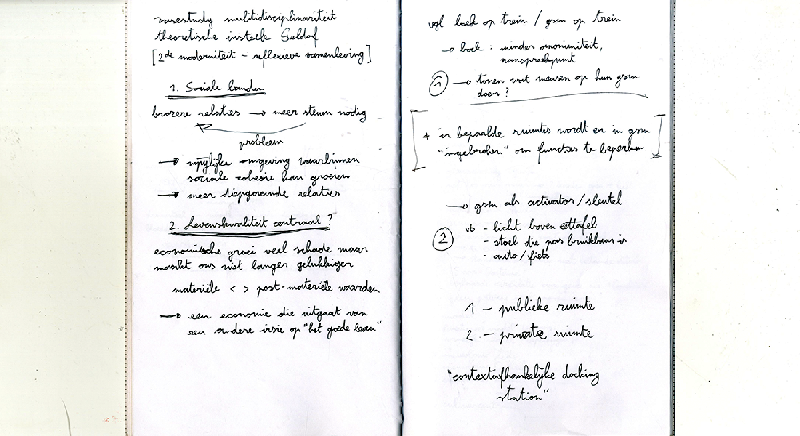 multidisciplinariteit
theoretische insteek
[2de moderniteit - reflexieve samenleving]
1. Sociale banden
brozere relaties → meer steun nodig
probleem
→ omgeving waarbinnen
sociale cohesie kan groeien
→ meer diepgaande relaties
2. Levenskwaliteit centraal?
economische groei veel schade maar
maakt ons niet langer gelukkiger
materiële < > post-materiële waarden
→ een economie die uitgaat van
een andere visie op "het goede leven"
vgl boek op trein / gsm op trein
→ boek : minder anonimiteit,
aanspreekpunt
1 → tonen wat mensen op hun gsm
doen?
+ in bepaalde ruimtes wordt en in gsm
"ingebroken" om functies te beperken
→ gsm als activator / sleutel
2
vb - licht boven eettafel
- stoel die pas bruikbaar is
- auto / fiets
1 - publieke ruimte
2 - private ruimte
"contextafhankelijke docking
station"